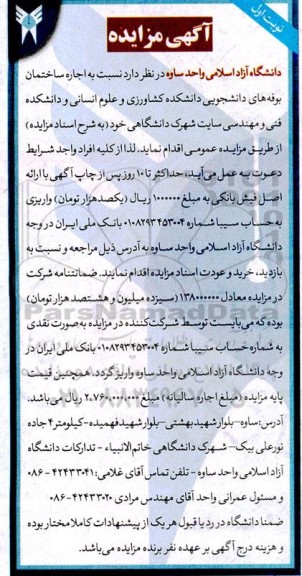 نوبت اول
آگهی مزایده
دانشگاه آزاد اسلامی واحد ساوه در نظر دارد نسبت به اجاره ساختمان
بوفه‌های دانشجویی دانشکده کشاورزی و علوم انسانی و دانشکده
فنی و مهندسی سایت شهرک دانشگاهی خود (به شرح اسناد مزایده)
از طریق مزایده عمومی اقدام نماید. لذا از کلیه افراد واجد شرایط
دعوت به عمل می‌آید، حداکثر تا ۱۰ روز پس از چاپ آگهی با ارائه
اصل فیش بانکی به مبلغ ۱۰۰۰۰۰۰ ریال (یکصدهزار تومان) واریزی
به حساب سیبا شماره ۰۱۰۸۲۹۳۴۵۳۰۰۴ بانک ملی ایران در وجه
دانشگاه آزاد اسلامی واحد ساوه به آدرس ذیل مراجعه و نسبت به
بازدید، خرید و عودت اسناد مزایده اقدام نمایند. ضمانتنامه شرکت
در مزایده معادل ۱۳۸۰۰۰۰۰۰ (سیزده میلیون و هشتصد هزار تومان)
بوده که می‌بایست توسط شرکت‌کننده در مزایده به صورت نقدی
به شماره حساب سیبا شماره ۰۱۰۸۲۹۳۴۵۳۰۰۴ بانک ملی ایران در
وجه دانشگاه آزاد اسلامی واحد ساوه واریز گردد. همچنین قیمت
پایه مزایده (مبلغ اجاره سالیانه) مبلغ ۲.۷۶۰.۰۰۰.۰۰۰ ریال می‌باشد.
آدرس: ساوه – بلوار شهید بهشتی – بلوار شهید فهمیده – کیلومتر ۴ جاده
نورعلی بیک – شهرک دانشگاهی خاتم الانبیاء - تدارکات دانشگاه
آزاد اسلامی واحد ساوه - تلفن تماس آقای غلامی: ۴۲۴۳۳۰۴۱ - ۰۸۶
و مسئول عمرانی واحد آقای مهندس مرادی ۴۲۴۳۳۰۲۰ - ۰۸۶
ضمنا دانشگاه در رد یا قبول هر یک از پیشنهادات کاملا مختار بوده
و هزینه درج آگهی بر عهده نفر برنده مزایده می‌باشد.
ParsNamadData